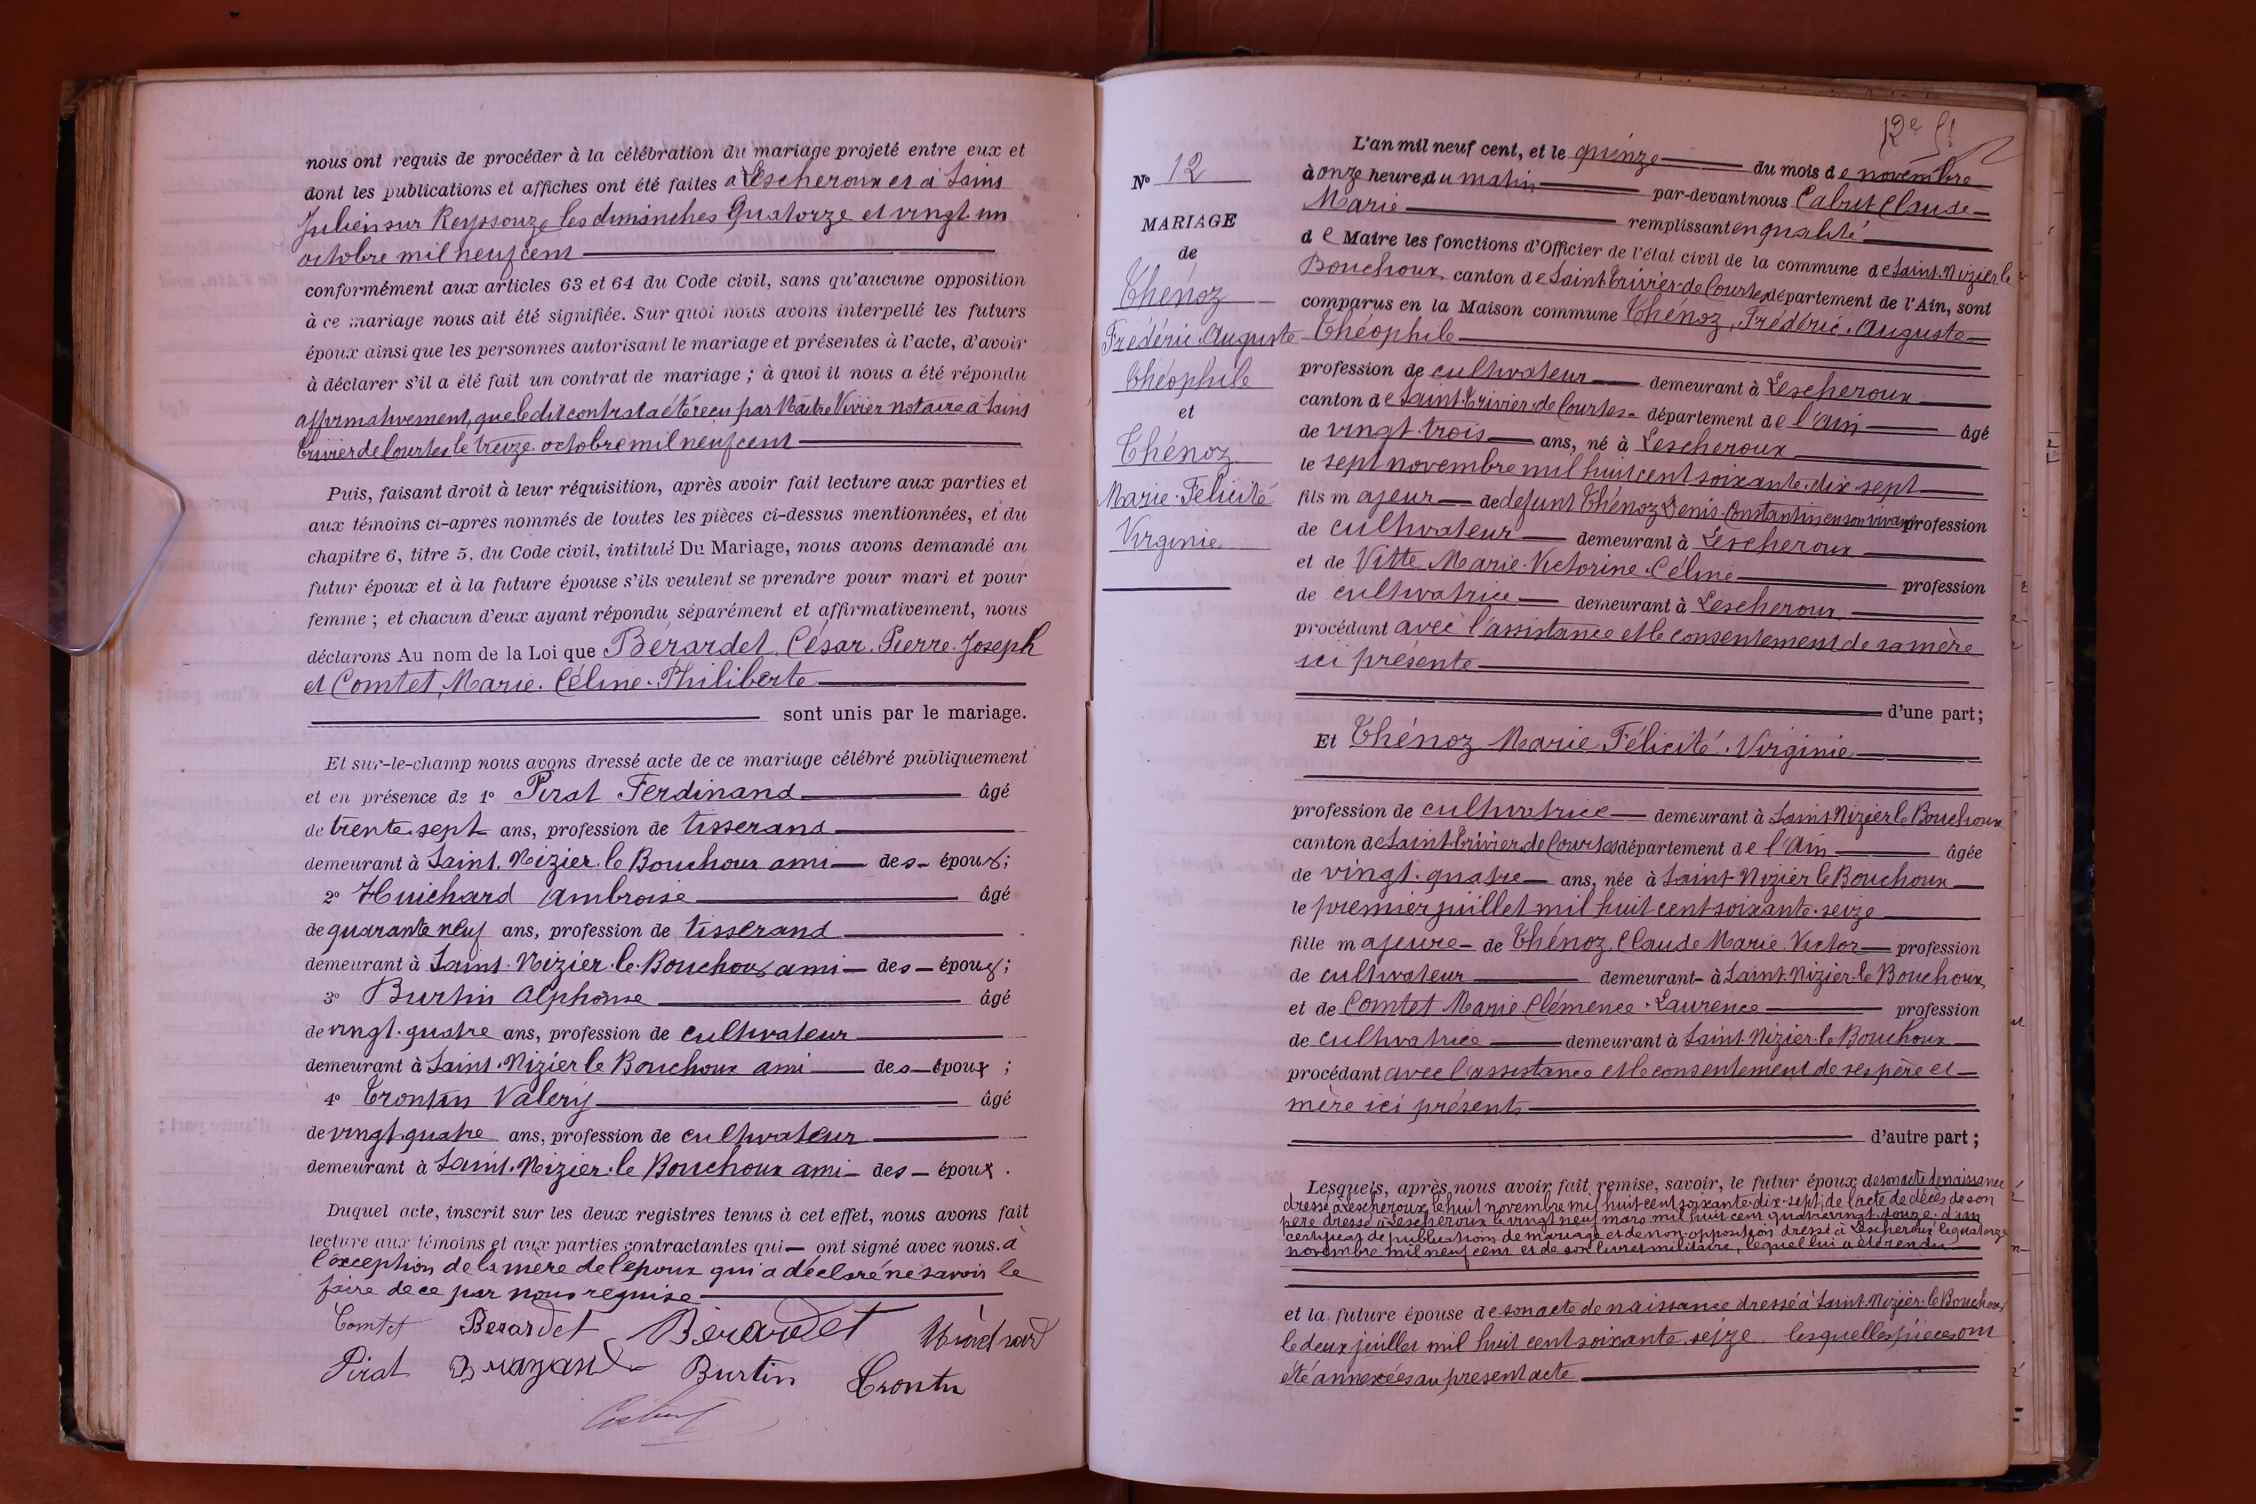 nous ont requis de procéder à la célébration du mariage projeté entre eux et
dont les publications et affiches ont été faites à Lescheroux et à Saint
Julien sur Reyssouze les dimanches Quatorze et vingt un
octobre mil neuf cent
conformément aux articles 63 et 64 du Code civil, sans qu'aucune opposition
à ce mariage nous ait été signifiée. Sur quoi nous avons interpellé les futurs
époux ainsi que les personnes autorisant le mariage et présentes à l'acte, d'avoir
à déclarer s'il a été fait un contrat de mariage ; à quoi il nous a été répondu
affirmativement, que le dit contrat a été reçu par Maître Vivier notaire à Saint
Trivier de Courtes le treize octobre mil neuf cent
Puis, faisant droit à leur réquisition, après avoir fait lecture aux parties et
aux témoins ci-après nommés de toutes les pièces ci-dessus mentionnées, et du
chapitre 6, titre 5, du Code civil, intitulé Du Mariage, nous avons demandé au
futur époux et à la future épouse s'ils veulent se prendre pour mari et pour
femme ; et chacun d'eux ayant répondu séparément et affirmativement, nous
déclarons Au nom de la Loi que Berardet César Pierre Joseph
et Comtet, Marie. Céline. Philiberte
sont unis par le mariage.
Et sur-le-champ nous avons dressé acte de ce mariage célébré publiquement
et en présence de 1° Pirat Ferdinand âgé
de trente sept ans, profession de tisserand
demeurant à Saint. Nizier. le Bouchoux ami des époux ;
2° Huichard Ambroise âgé
de quarante neuf ans, profession de tisserand
demeurant à Saint. Nizier. le. Bouchoux ami des époux ;
3° Burtin Alphonse âgé
de vingt. quatre ans, profession de cultivateur
demeurant à Saint. Nizier le Bouchoux ami des époux ;
4° Trontin Valéry âgé
de vingt. quatre ans, profession de cultivateur
demeurant à Saint. Nizier. le Bouchoux ami des époux .
Duquel acte, inscrit sur les deux registres tenus à cet effet, nous avons fait
lecture aux témoins et aux parties contractantes qui ont signé avec nous. à
l'exception de la mère de l'époux qui a déclaré ne savoir le
faire de ce par nous requise
Comtet Berardet Berardet
Pirat Burtin Trontin
12e
N° 12
MARIAGE
de
Thénoz
Frédéric. Auguste
Théophile
et
Thénoz
Marie. Félicité
Virginie
L'an mil neuf cent, et le quinze du mois de novembre
à onze heures du matin par-devant nous Cabut Claude
Marie remplissant en qualité
de Maire les fonctions d'Officier de l'état civil de la commune de Saint. Nizier le
Bouchoux, canton de Saint Trivier de Courtes, département de l'Ain, sont
comparus en la Maison commune Thénoz, Frédéric. Auguste
Théophile
profession de cultivateur demeurant à Lescheroux
canton de Saint. Trivier. de Courtes département de l'Ain âgé
de vingt. trois ans, né à Lescheroux
le sept novembre mil huit cent soixante. dix sept
fils majeur de defunt Thénoz Denis. Constantin en son vivant profession
de cultivateur demeurant à Lescheroux
et de Vitte Marie. Victorine. Céline profession
de cultivatrice demeurant à Lescheroux
procédant avec l'assistance et le consentement de sa mère
ici présente
d'une part ;
Et Thénoz Marie Félicité. Virginie
profession de cultivatrice demeurant à Saint Nizier le Bouchoux
canton de Saint. Trivier. de Courtes département de l'Ain âgée
de vingt. quatre ans, née à Saint. Nizier le Bouchoux
le premier juillet mil huit cent soixante. seize
fille majeure de Thénoz, Claude Marie. Victor profession
de cultivateur demeurant à Saint. Nizier. le Bouchoux
et de Comtet Marie. Clémence. Laurence profession
de cultivatrice demeurant à Saint. Nizier. le Bouchoux
procédant avec l'assistance et le consentement de ses père et
mère ici présents
d'autre part ;
Lesquels, après nous avoir fait remise, savoir, le futur époux, de son acte de naissance
dressé à Lescheroux, le huit novembre mil huit cent soixante. dix. sept, de l'acte de décès de son
père dressé à Lescheroux le vingt neuf mars mil huit cent quatre vingt. douze. d'un
certificat de publications de mariage et de non. opposition dressé à Lescheroux le quatorze
novembre mil neuf cent et de son livret militaire, lequel lui a été rendu
et la future épouse de son acte de naissance dressé à Saint. Nizier. le Bouchoux,
le deux juillet mil huit cent soixante. seize lesquelles pièces ont
été annexées au présent acte